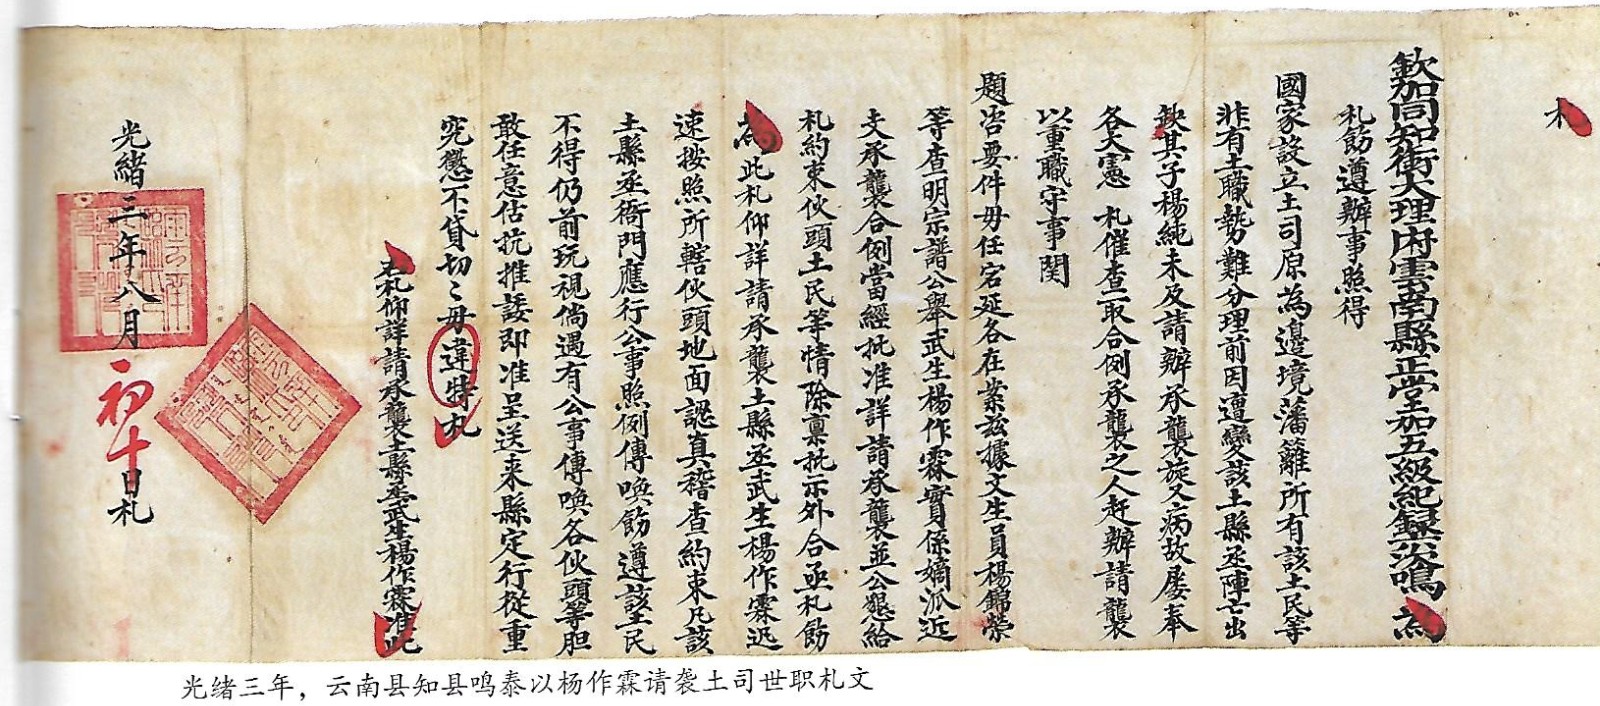 札
欽加同知銜大理府雲南縣正堂加五級紀錄 鳴 為
札飭遵辦事照得
國家設立土司原為邊境藩籬所有該土民等
非有土職勢難分理前因遭變該土縣丞陣亡出
缺其子楊純未及請辦承襲旋又病故屢奉
各大憲 札催查取合例承襲之人赶辦請襲
以重職守事関
題咨要件毋任宕延各在案茲據文生員楊錦榮
等查明宗譜公舉武生楊作霖實係嫡派近
支承襲合例當經批准詳請承襲並公懇給
札約束伙頭土民等情除稟批示外合亟札飭
為此札仰詳請承襲土縣丞武生楊作霖迅
速按照所轄伙頭地面認真稽查約束凡該
土縣丞衙門應行公事照例傳喚飭遵該土民
不得仍前玩視倘遇有公事傳喚各伙頭等胆
敢任意估抗推諉即准呈送来縣定行從重
究懲不貸切〻毋違特札
右札仰詳請承襲土縣丞武生楊作霖准此
光緒三年八月初十日札
光绪三年，云南县知县鸣泰以杨作霖请袭土司世职札文